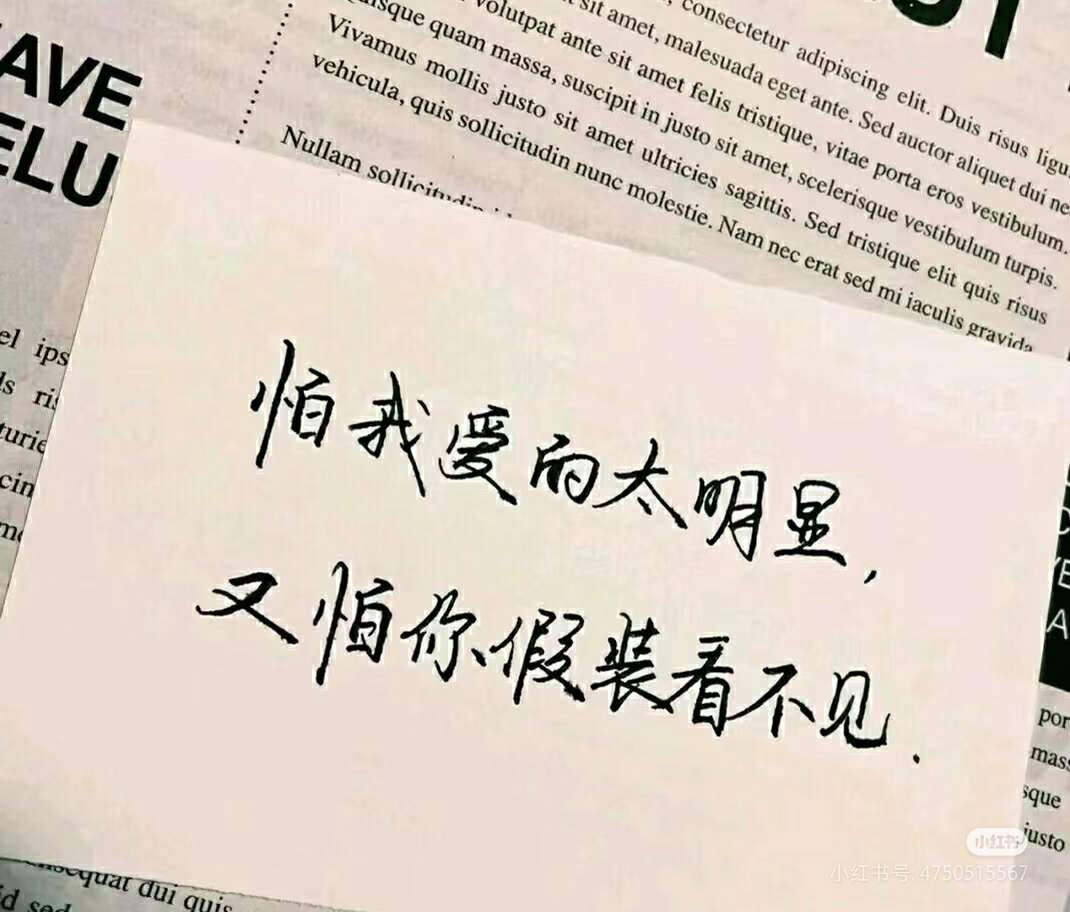 AVE
ELU
consectetur adipiscing elit. Duis risus
sit amet, malesuada eget ante. Sed auctor aliquet dui
volutpat ante sit amet felis tristique, vitae porta eros vestibulum.
quam massa, suscipit in justo sit amet, scelerisque vestibulum turpis.
Vivamus mollis justo sit amet ultricies sagittis. Sed tristique elit quis risus
vehicula, quis sollicitudin nunc molestie. Nam nec erat sed mi iaculis gravida
Nullam sollicitudin
怕我爱的太明显,
又怕你假装看不见.
justo
dui quis
小红书
小红书号: 4750515567